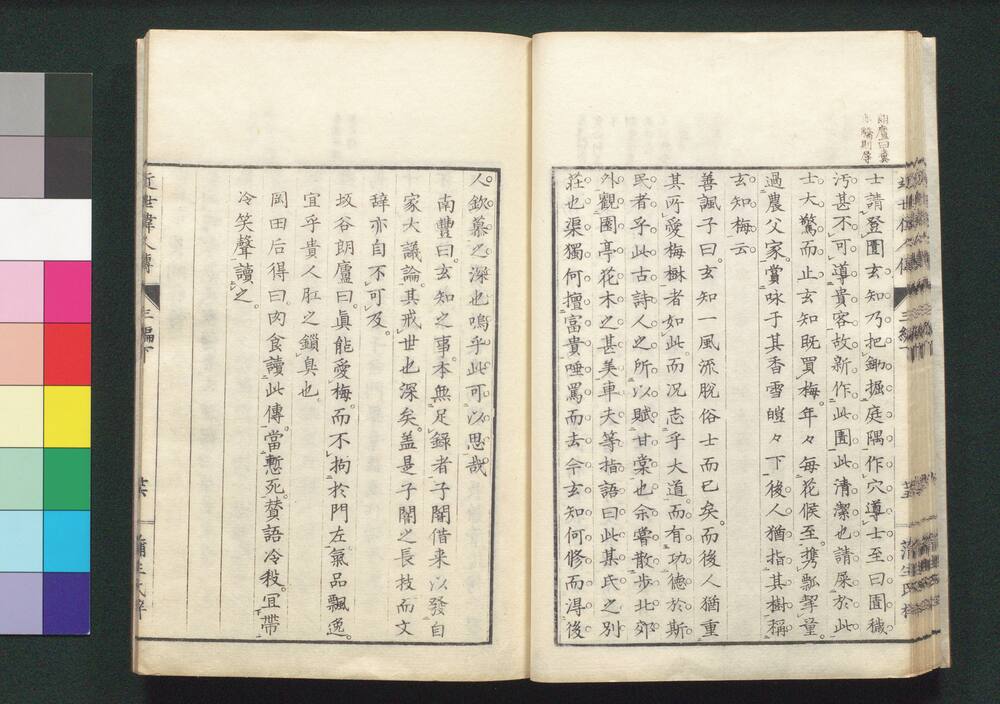 士請登圊玄知乃把鋤掘庭隅作穴導士至曰圊穢
汚甚不可導貴客故新作此圊此清潔也請屎於此
士大驚而止玄知既買梅年々毎花候至携瓢挈量
過農父家賞咏于其香雪皚々下後人猶指其樹稱
玄知梅云
善諷子曰玄知一風流脱俗士而已矣而後人猶重
其所愛梅樹者如此而况志乎大道而有功德於斯
民者乎此古詩人之所以賦甘棠也余嘗散步北郊
外觀園亭花木之甚美車夫等指語曰此某氏之別
莊也渠獨何擅富貴唾罵而去今玄知何修而得後
人欽慕之深也嗚乎此可以思哉
南豐曰玄知之事本無足錄者子闇借来以發自
家大議論其戒世也深矣盖是子闇之長技而文
辞亦自不可及
坂谷朗廬曰眞能愛梅而不拘於門左氣品飄逸
宜乎貴人肛之鎖臭也
岡田后得曰肉食讀此傳當慙死賛語冷殺宜帶
冷笑聲讀之
近世偉人傳
三編下
蒲生氏梓